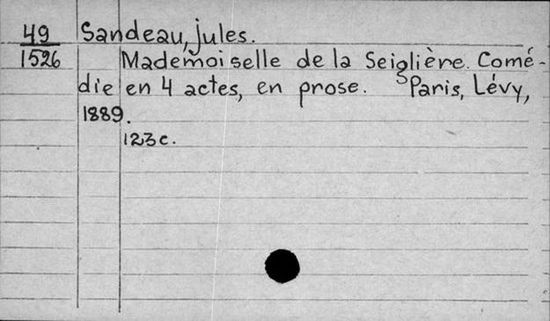 49 Sandeau, Jules.
1526 Mademoiselle de la Seiglière. Comé-
die en 4 actes, en prose. Paris, Lévy,
1889.
123c.